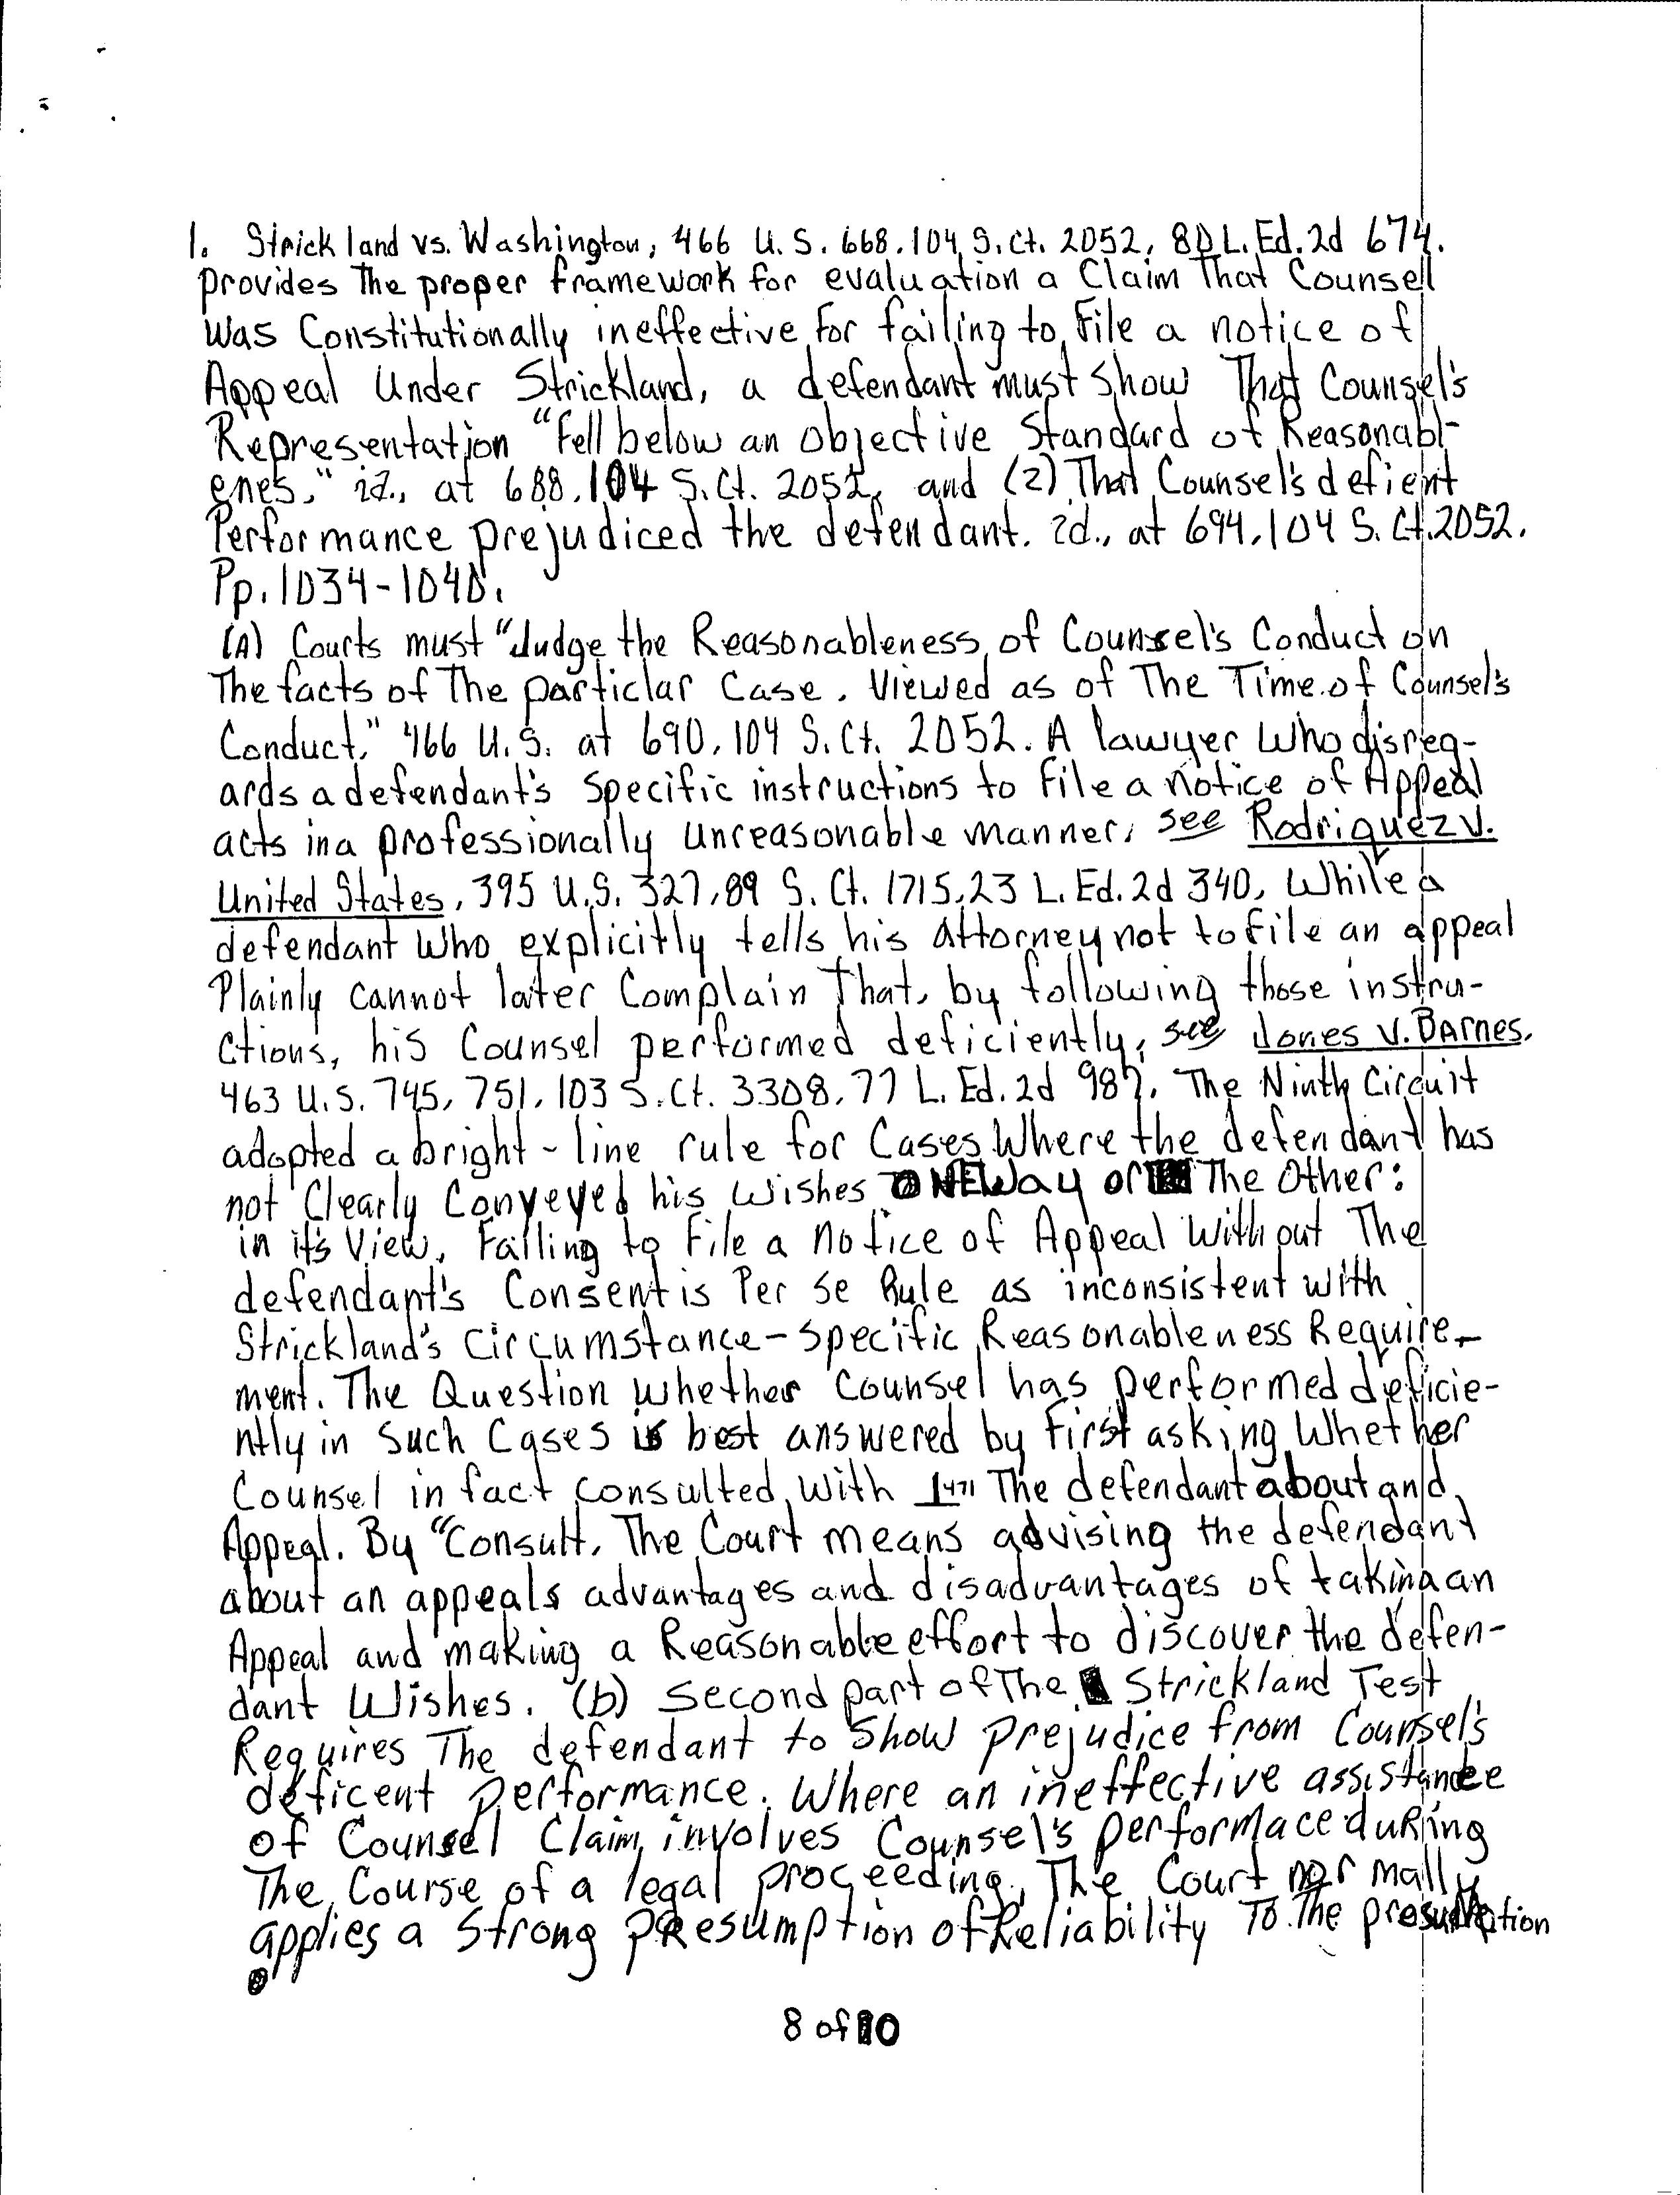 1. Strickland vs. Washington, 466 U.S. 668.104 S.Ct. 2052, 80 L.Ed.2d 674.
provides The proper framework for evaluation a Claim That Counsel
Was Constitutionally ineffective for failing to File a notice of
Appeal Under Strickland, a defendant must Show That Counsel's
Representation "Fell below an Objective Standard of Reasonabl-
enes," id., at 688.104 S.Ct. 2052, and (2) That Counsel's defient
Performance prejudiced the defendant. id., at 694,104 S.Ct.2052.
Pp.1034-1040.
(A) Courts must "Judge the Reasonableness of Counsel's Conduct on
The facts of The particlar Case. Viewed as of The Time of Counsel's
Conduct," 466 U.S. at 690, 104 S.Ct. 2052. A lawyer Who disreg-
ards a defendant's Specific instructions to File a notice of Appeal
acts in a professionally Unreasonable manner, see Rodriquez v.
United States, 395 U.S. 327,89 S.Ct. 1715,23 L.Ed.2d 340, While a
defendant Who explicitly tells his Attorney not to File an appeal
Plainly cannot later Complain That, by following those instru-
ctions, his Counsel performed deficiently, see Jones v. BArnes,
463 U.S. 745, 751, 103 S.Ct. 3308, 77 L.Ed.2d 987. The Ninth Circuit
adopted a bright-line rule for Cases Where the defendant has
not Clearly Conveyed his Wishes ONE Way or The Other:
in it's View, Failing to File a notice of Appeal Without The
defendant's Consent is Per Se Rule as inconsistent with
Strickland's Circumstance-Specific Reasonableness Require-
ment. The Question whether Counsel has performed deficie-
ntly in Such Cases is best answered by First asking Whether
Counsel in fact consulted with 1471 The defendant about and
Appeal. By "Consult, The Court means advising the defendant
about an appeals advantages and disadvantages of taking an
Appeal and making a Reasonable effort to discover the defen-
dant Wishes. (b) Second part of The Strickland Test
Requires The defendant to Show prejudice from Counsel's
deficent performance. Where an ineffective assistance
of Counsel Claim involves Counsel's performace during
The Course of a legal proceeding, The Court normally
applies a Strong PResumption of Reliability To The presumption
8 of 10